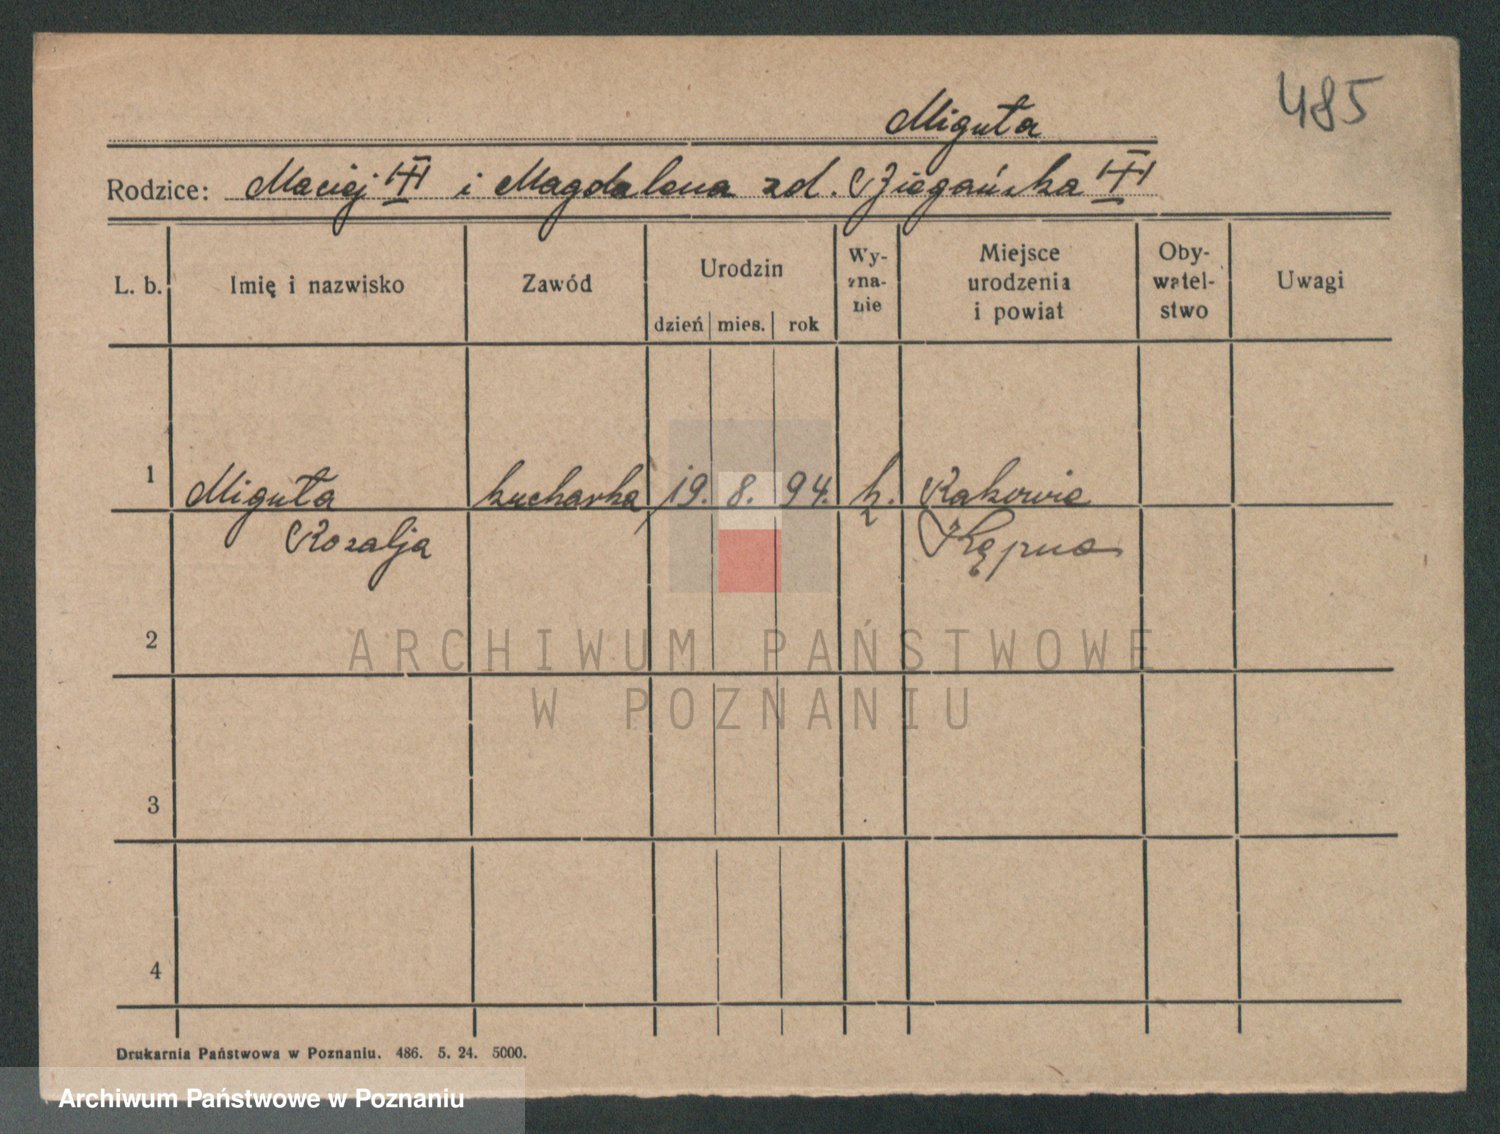 485
Miguła
Rodzice: Maciej i Magdalena zd.
L. b. Imię i nazwisko Zawód Urodzin dzień mies. rok Wy-zna-nie Miejsce urodzenia i powiat Oby-watel-stwo Uwagi
1 Miguła kucharka 19. 8. 94. k. Rakowie
Rozalja Kępno
2
ARCHIWUM PAŃSTWOWE
W POZNANIU
3
4
Drukarnia Państwowa w Poznaniu. 486. 5. 24. 5000.
Archiwum Państwowe w Poznaniu